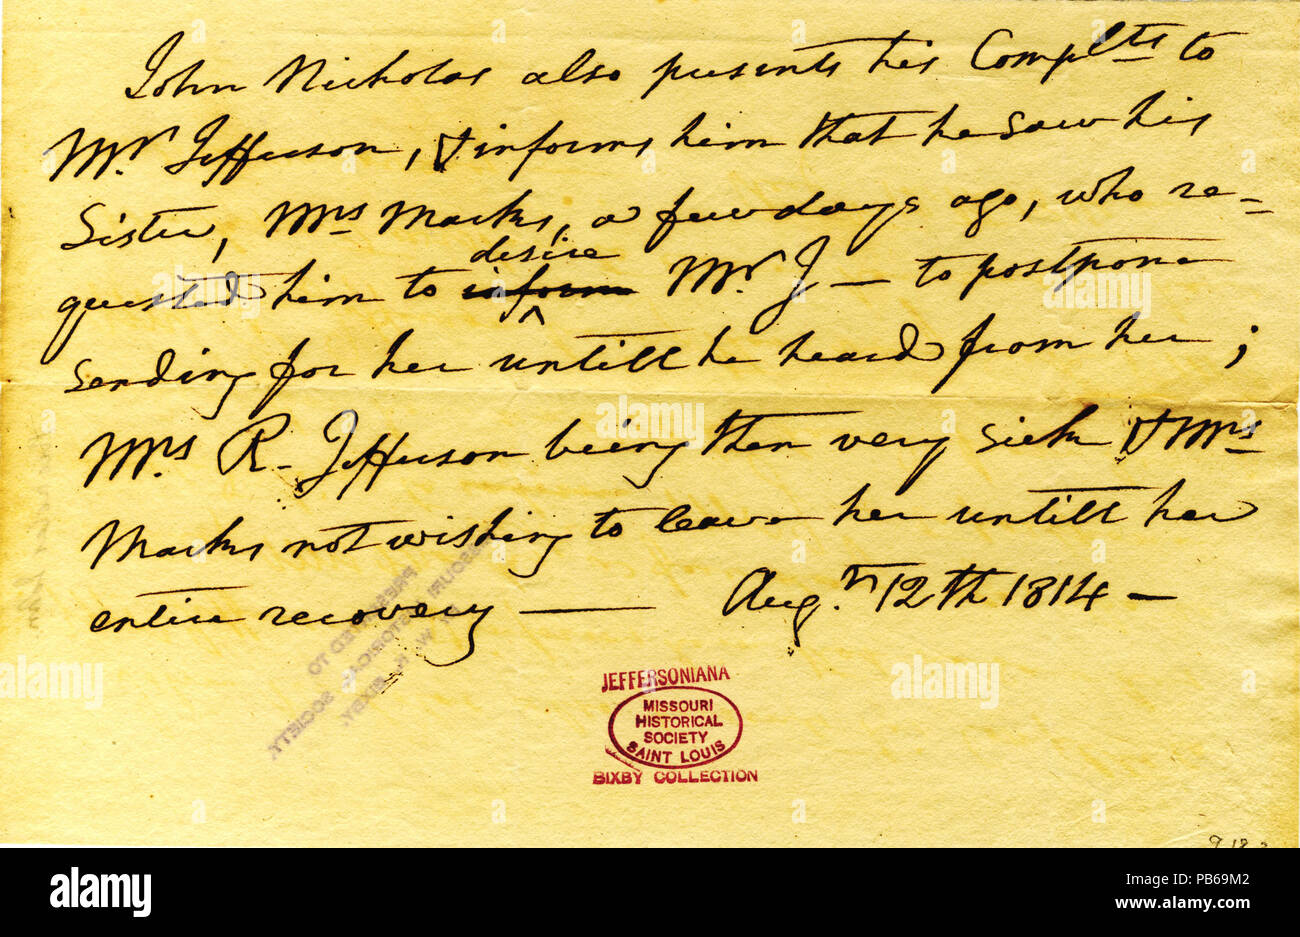 John Nicholas also presents his Complts to
Mr. Jefferson, & informs him that he saw his
Sister, Mrs Marks, a few days ago, who re-
quested him to inform desire Mr. J — to postpone
sending for her untill he heard from her;
Mrs R. Jefferson being then very sick & Mrs
Marks not wishing to leave her untill her
entire recovery — Aug. 12th 1814 —
PRESENTED TO
MISSOURI HISTORICAL SOCIETY
BY
W. K. BIXBY.
JEFFERSONIANA
MISSOURI
HISTORICAL
SOCIETY
SAINT LOUIS
BIXBY COLLECTION
alamy
alamy
Image ID: PB69M2
www.alamy.com